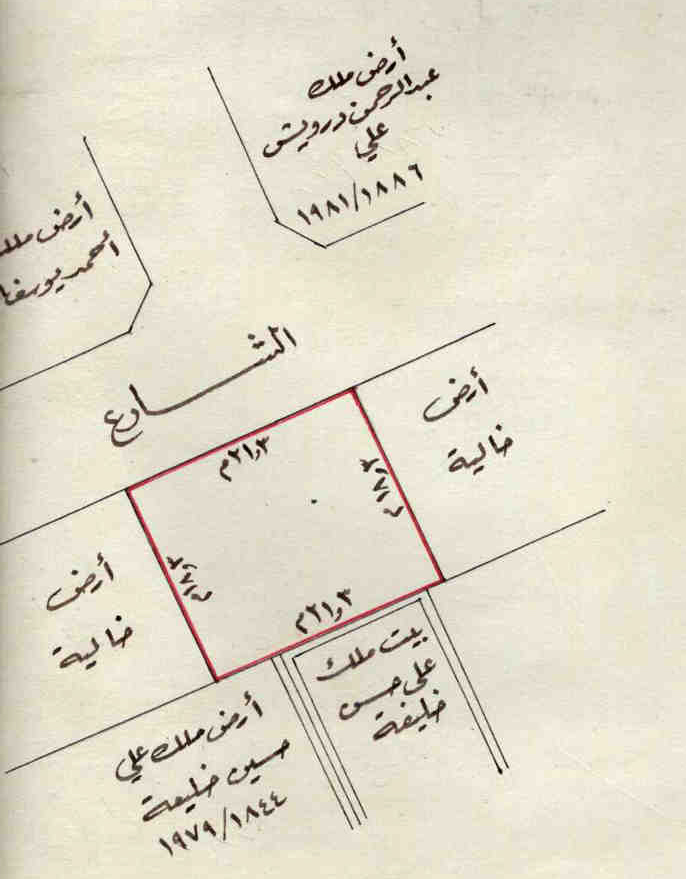 أرض ملك
عبدالرحمن درويش
علي
١٩٨١/١٨٨٦
أرض ملك
احمد يوسف
الشارع
٢١,٣م
أرض
خالية
أرض
خالية
٢١,٣م
بيت ملك
علي حسن
خليفة
أرض ملك علي
حسين خليفة
١٩٧٩/١٨٤٤